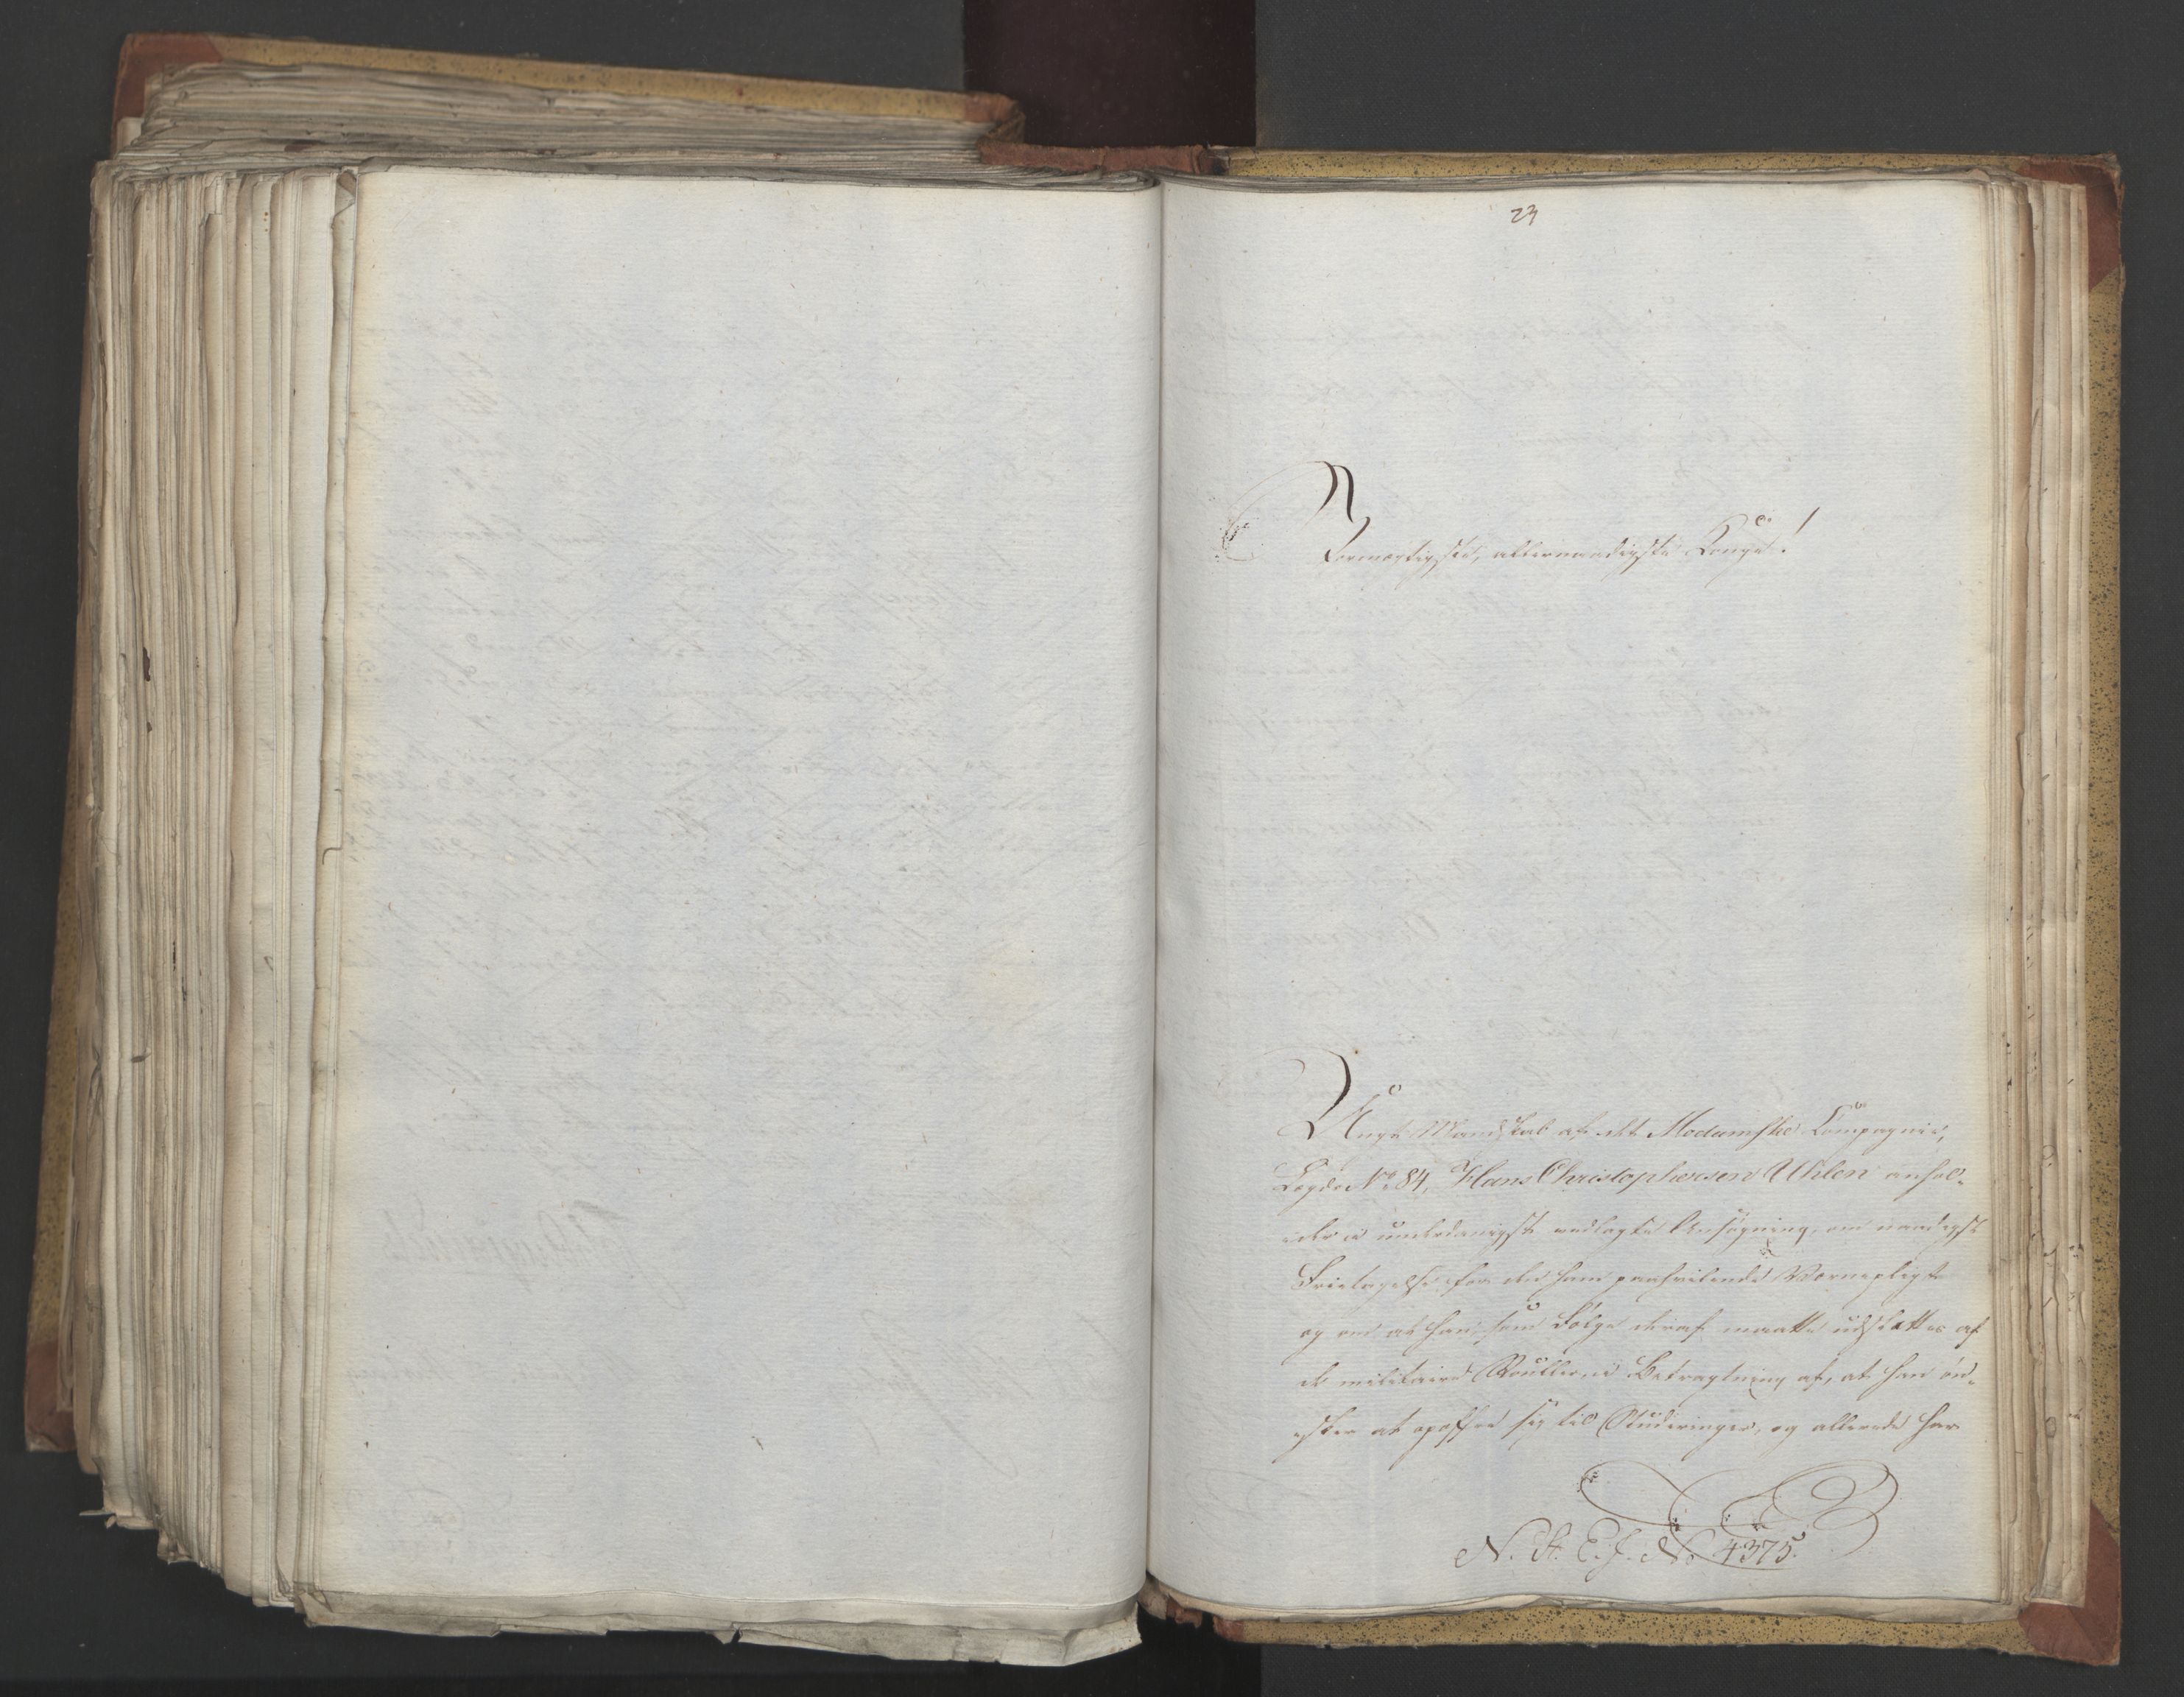 23
Stormægtigste, allernaadigste Konge!
Unge Mandskab af det Modumske Compagnie,
Lægd No 84, Hans Christophersen Uhlen anhol-
der i underdanigst vedlagte Ansøgning, om naadigst
Fritagelse for den ham paahvilende Værnepligt
og om at han som Følge deraf maatte udslettes af
de militaire Roullere i Betragtning af, at han øn-
sker at opoffre sig til Studeringer, og allerede har
N. A. E. J. No 4375.